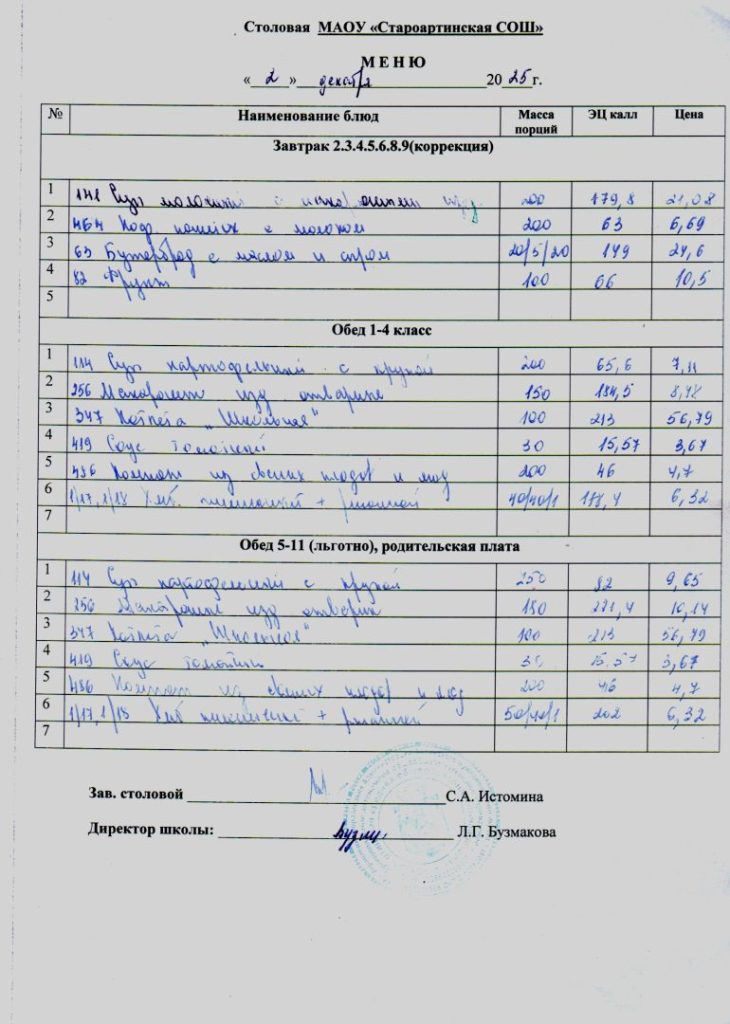 Столовая МАОУ «Староартинская СОШ»
МЕНЮ
« 2 » декабря 2025 г.
№ Наименование блюд Масса порций ЭЦ калл Цена
Завтрак 2.3.4.5.6.8.9(коррекция)
1 Суп молочный с 200 179,8 21,08
2 464 Коф. напиток с молоком 200 63 6,69
3 63 Бутерброд с маслом и сыром 20/5/20 149
4 82 Фрукт 100 66 10,5
5
Обед 1-4 класс
1 114 Суп картофельный с крупой 200 65,6 7,11
2 256 Макароные изд отварные 150 184,5 8,48
3 347 Котлета „Школьная" 100 213 56,79
4 419 Соус томатный 30 15,57 3,67
5 486 Компот из свежих плодов и ягод 200 46 4,7
6 1/17,1/18 Хлеб пшеничный + ржаной 40/40/1 178,4 6,32
7
Обед 5-11 (льготно), родительская плата
1 114 Суп картофельный с крупой 250 82 9,65
2 256 Макароные изд отварные 180 221,4 10,14
3 347 Котлета „Школьная" 100 213 56,79
4 419 Соус томатный 30 15,57 3,67
5 486 Компот из свежих плодов и ягод 200 46 4,7
6 1/17,1/18 Хлеб пшеничный + ржаной 50/40/1 202 6,32
7
Зав. столовой С.А. Истомина
Директор школы: Л.Г. Бузмакова